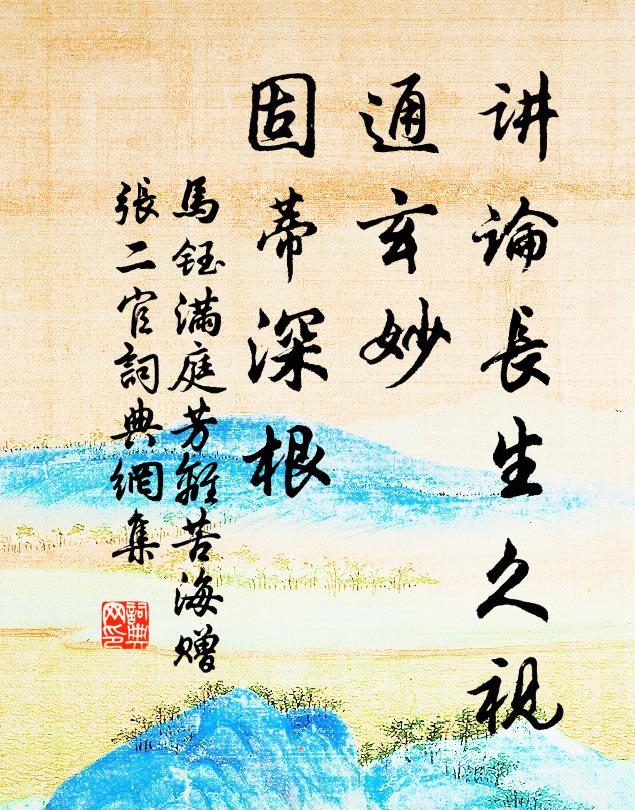 讲论長生久视
通玄妙
固蒂深根
馬钰满庭芳離苦海赠
張二官詞典網集
詞典网印